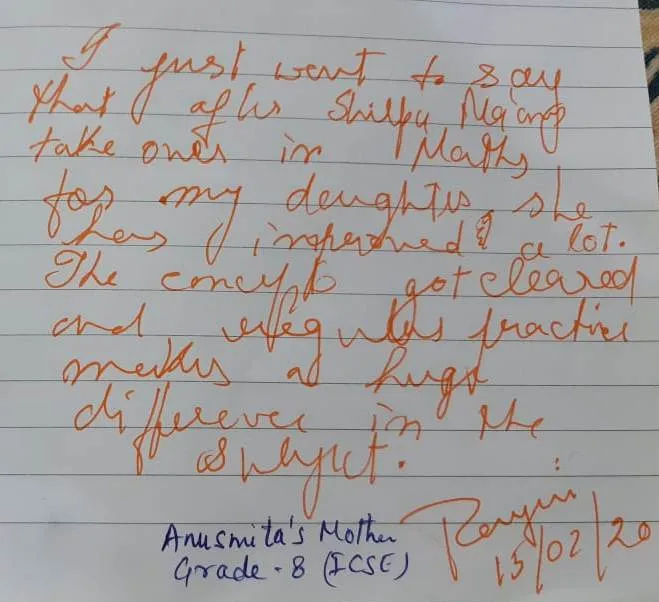 I just want to say
that after Shilpa Ma'am
take overs in Maths
for my daughter, she
has improved a lot.
The concepts got cleared
and regular practice
makes a huge
difference in the
subject.
Anusmita's Mother
Grade - 8 (ICSE)
15/02/20